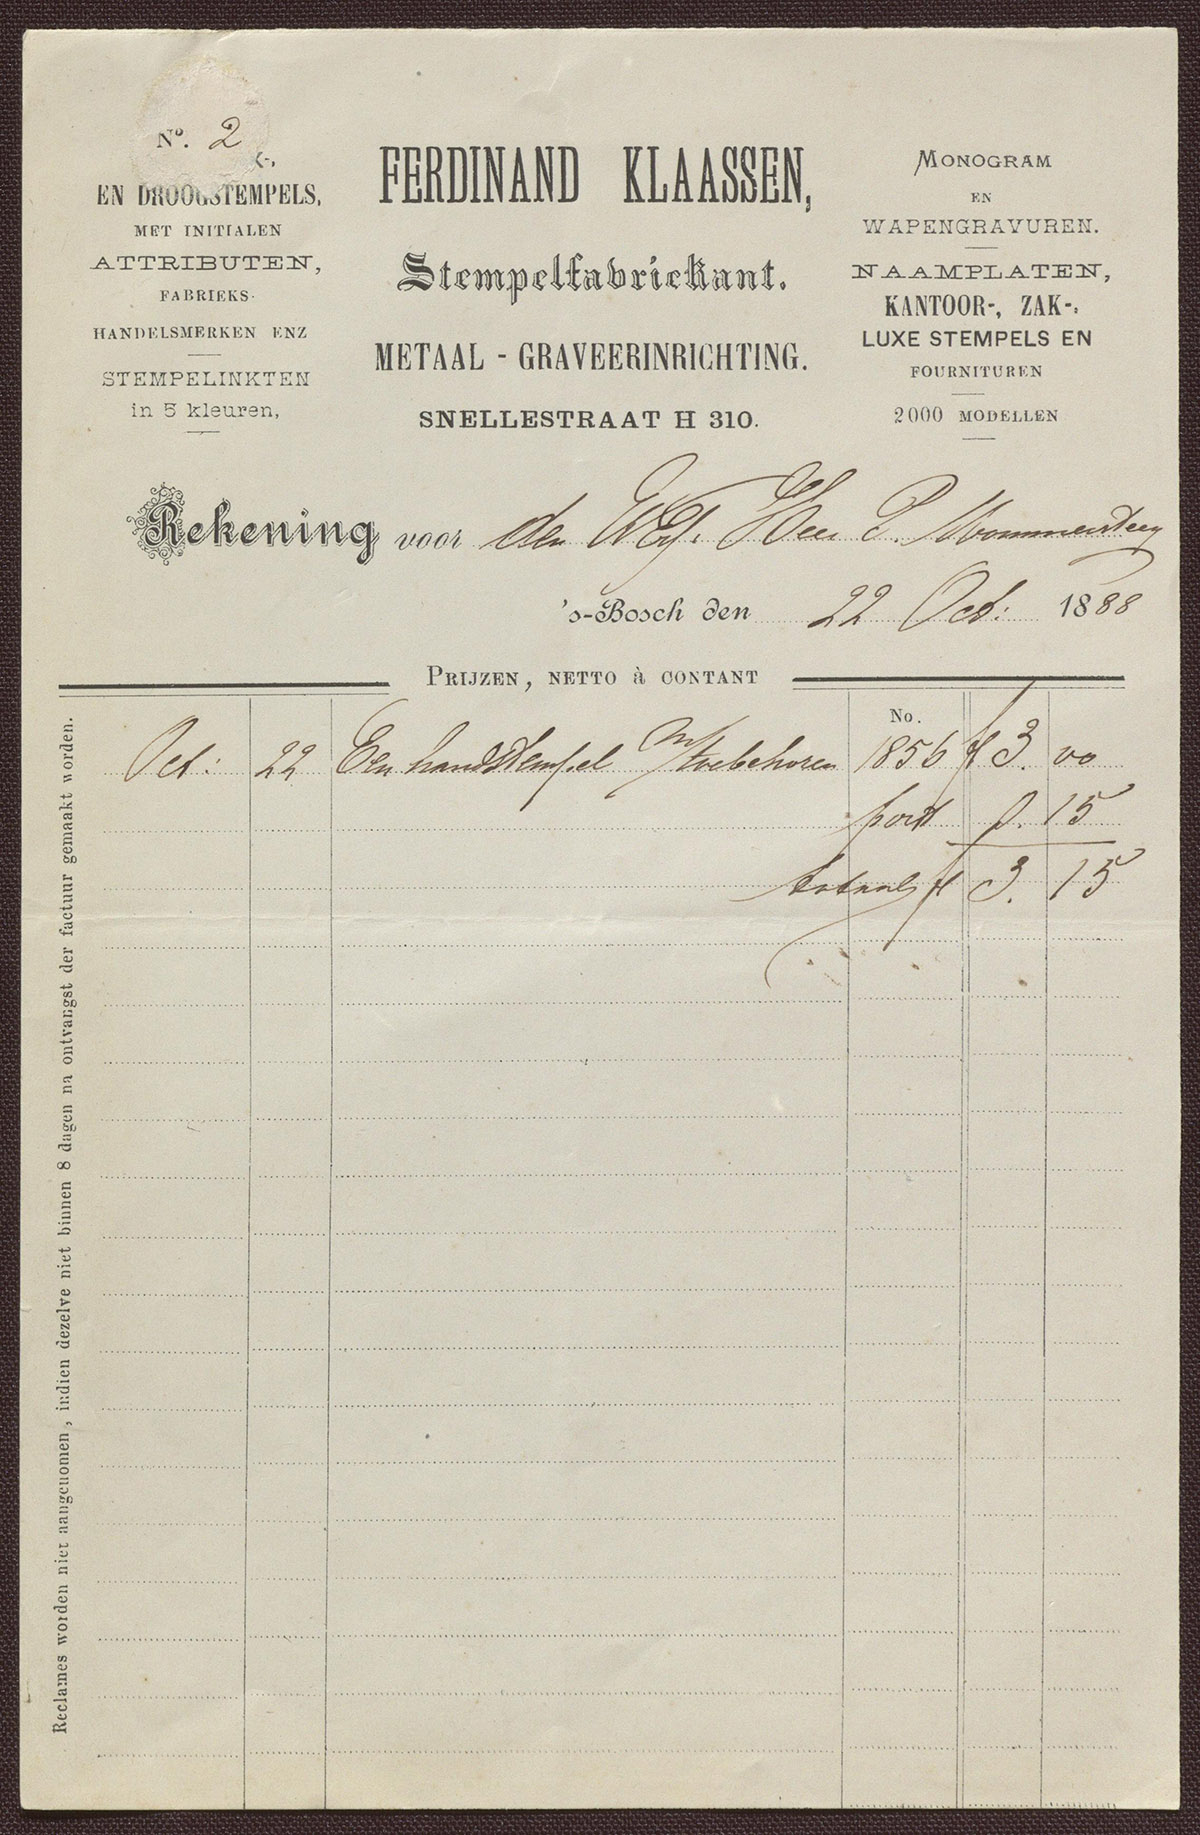 No. 2
K-,
EN DROOGSTEMPELS,
MET INITIALEN
ATTRIBUTEN,
FABRIEKS-
HANDELSMERKEN ENZ
STEMPELINKTEN
in 5 kleuren,
FERDINAND KLAASSEN,
Stempelfabriekant.
METAAL - GRAVEERINRICHTING.
SNELLESTRAAT H 310.
MONOGRAM
EN
WAPENGRAVUREN.
NAAMPLATEN,
KANTOOR-, ZAK-,
LUXE STEMPELS EN
FOURNITUREN
2000 MODELLEN
Rekening voor den WEd. Heer P.
's-Bosch den 22 Oct: 1888
PRIJZEN, NETTO à CONTANT
No.
Oct: 22 Een handstempel m/toebehoren 1856 fl 3. 00
port 0. 15
totaal fl 3. 15
Reclames worden niet aangenomen, indien dezelve niet binnen 8 dagen na ontvangst der factuur gemaakt worden.